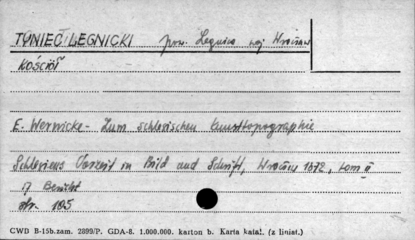 TYNIEC LEGNICKI pow. Legnica woj. Wrocław
KOŚCIÓŁ
E. Wernicke - Zum schlesischen Kunsttopographie
Schlesiens Vorzeit in Bild und Schrift, Wrocław 1872, tom II
17 Bericht
str. 105
CWD B-15b.zam. 2899/P. GDA-8. 1.000.000. karton b. Karta katal. (z liniat.)